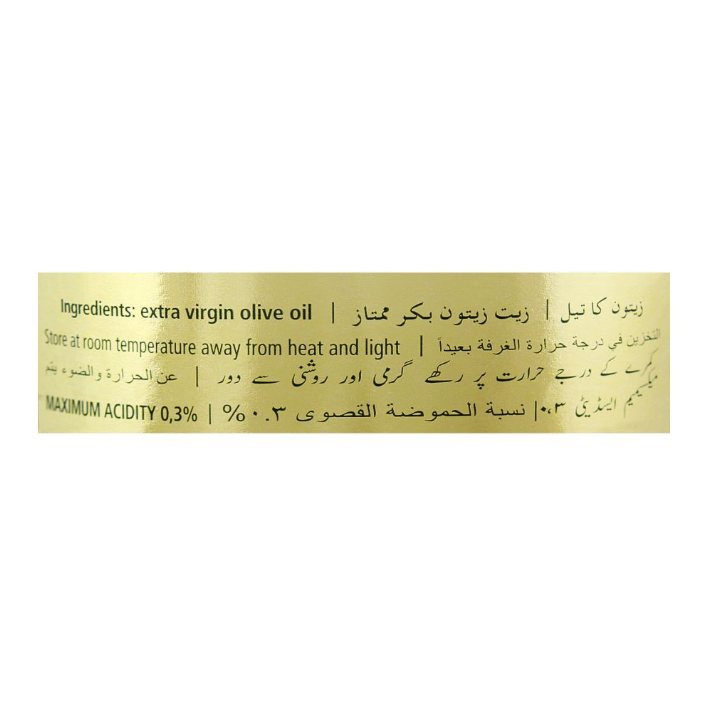 Ingredients: extra virgin olive oil | زيت زيتون بكر ممتاز | زیتون کا تیل
Store at room temperature away from heat and light | التخزين في درجة حرارة الغرفة بعيداً
عن الحرارة والضوء يتم | کمرے کے درجے حرارت پر رکھے گرمی اور روشنی سے دور
MAXIMUM ACIDITY 0,3% | نسبة الحموضة القصوى ٠.٣% | میکسیمم ایسڈیٹی ۰،۳